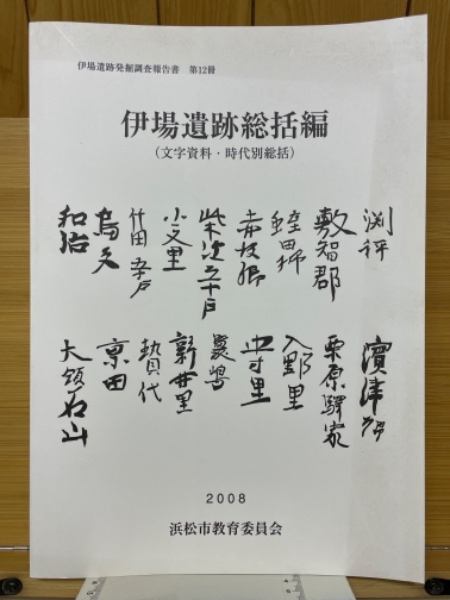 伊場遺跡発掘調査報告書 第12冊
伊場遺跡総括編
(文字資料・時代別総括)
渕評
敷智郡
蛭田郷
赤坂郷
柴江五十戸
小文里
竹田五十戸
烏文
和治
濱津郷
栗原驛家
入野里
中寸里
新井里
贄代
京田
大領石山
2008
浜松市教育委員会